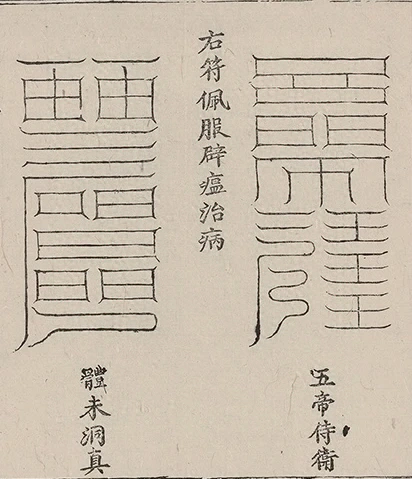 五帝侍衛
右符佩服辟瘟治病
體未洞真